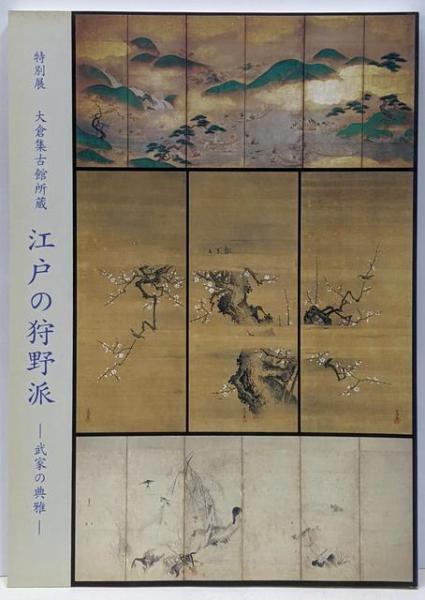 特別展 大倉集古館所蔵
江戸の狩野派
―武家の典雅―